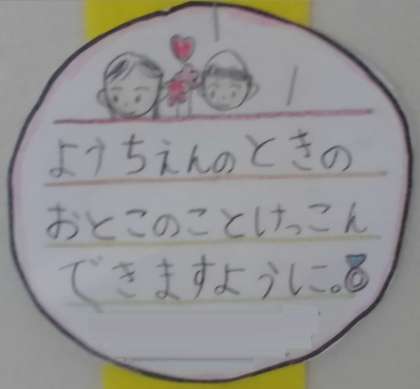 ようちえんのときの
おとこのことけっこん
できますように。